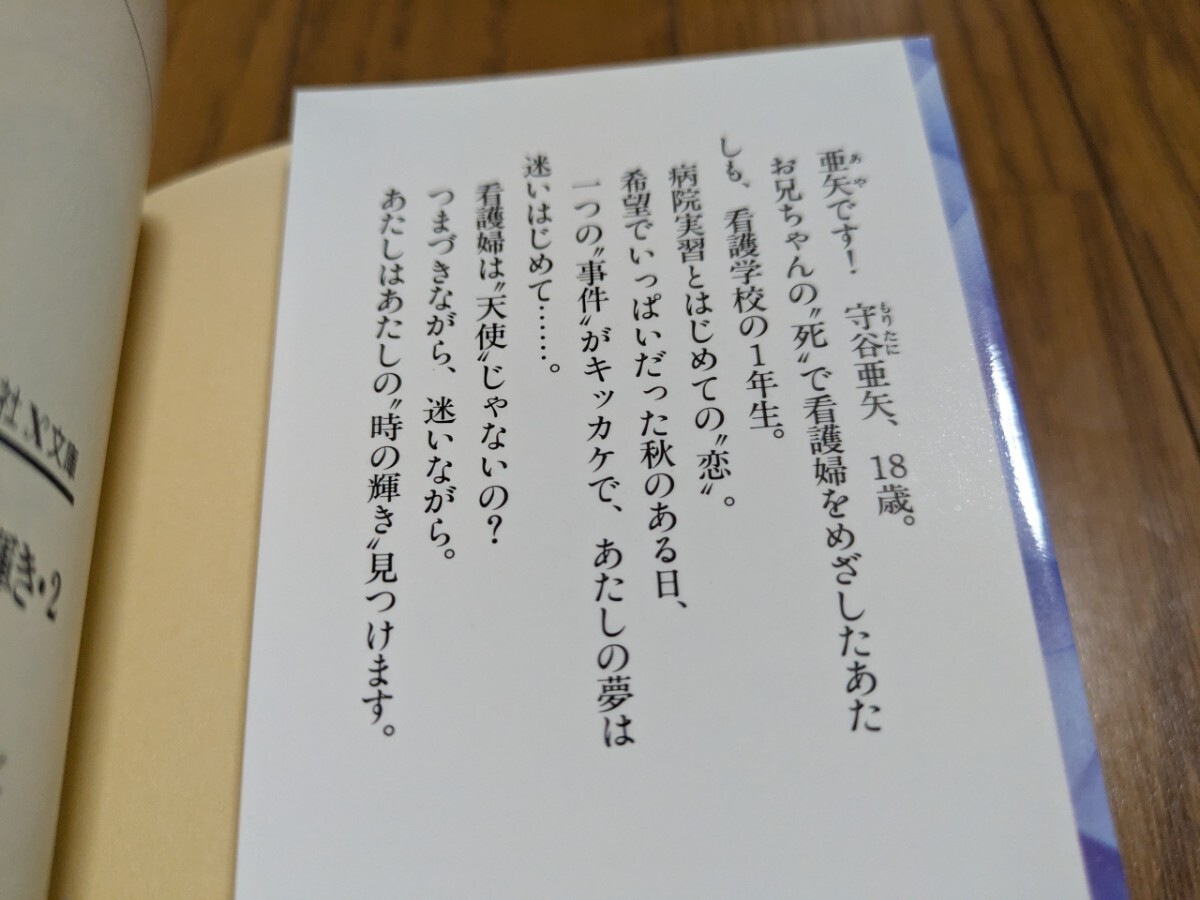 亜矢です! 守谷亜矢、18歳。
あや
もりたに
お兄ちゃんの〝死〟で看護婦をめざしたあた
しも、看護学校の1年生。
病院実習とはじめての〝恋〟。
希望でいっぱいだった秋のある日、
一つの〝事件〟がキッカケで、あたしの夢は
迷いはじめて……。
看護婦は〝天使〟じゃないの?
つまづきながら、迷いながら。
あたしはあたしの〝時の輝き〟見つけます。
社X文庫
輝き・2